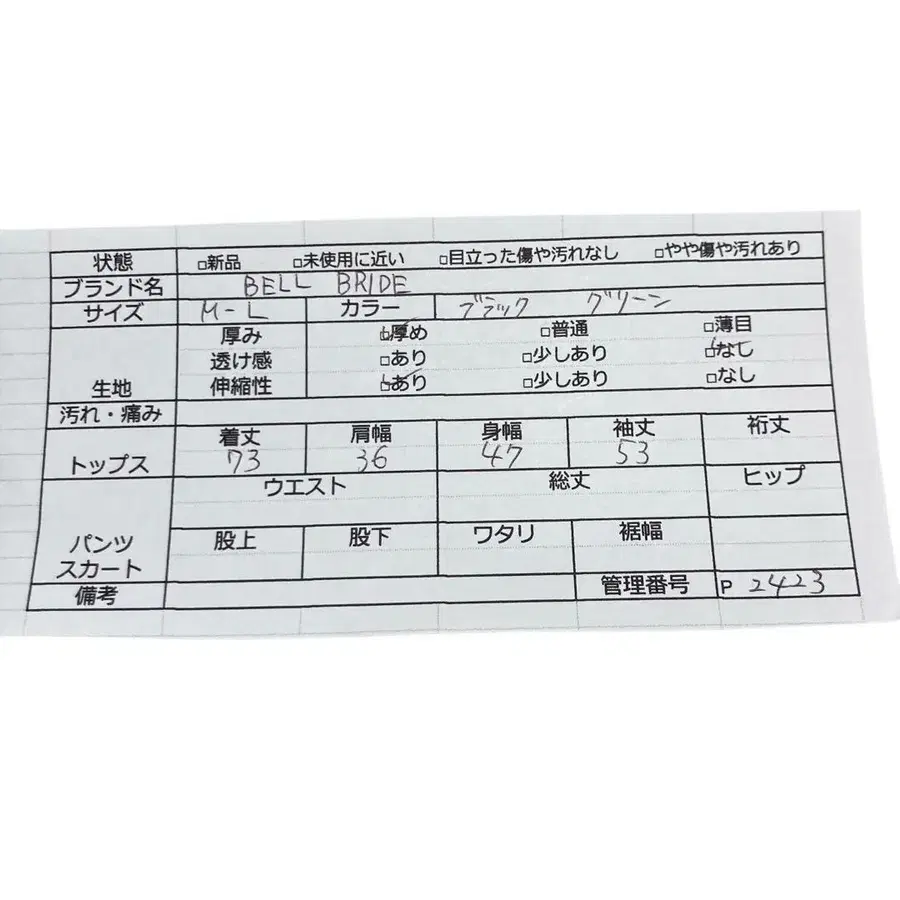 状態 □新品 □未使用に近い □目立った傷や汚れなし □やや傷や汚れあり
ブランド名 BELL BRIDE
サイズ M-L カラー ブラック グリーン
厚み □厚め □普通 □薄目
透け感 □あり □少しあり □なし
生地 伸縮性 □あり □少しあり □なし
汚れ・痛み
着丈 肩幅 身幅 袖丈 裄丈
トップス 73 36 47 53
ウエスト 総丈 ヒップ
股上 股下 ワタリ 裾幅
パンツ
スカート
備考 管理番号 P 2423